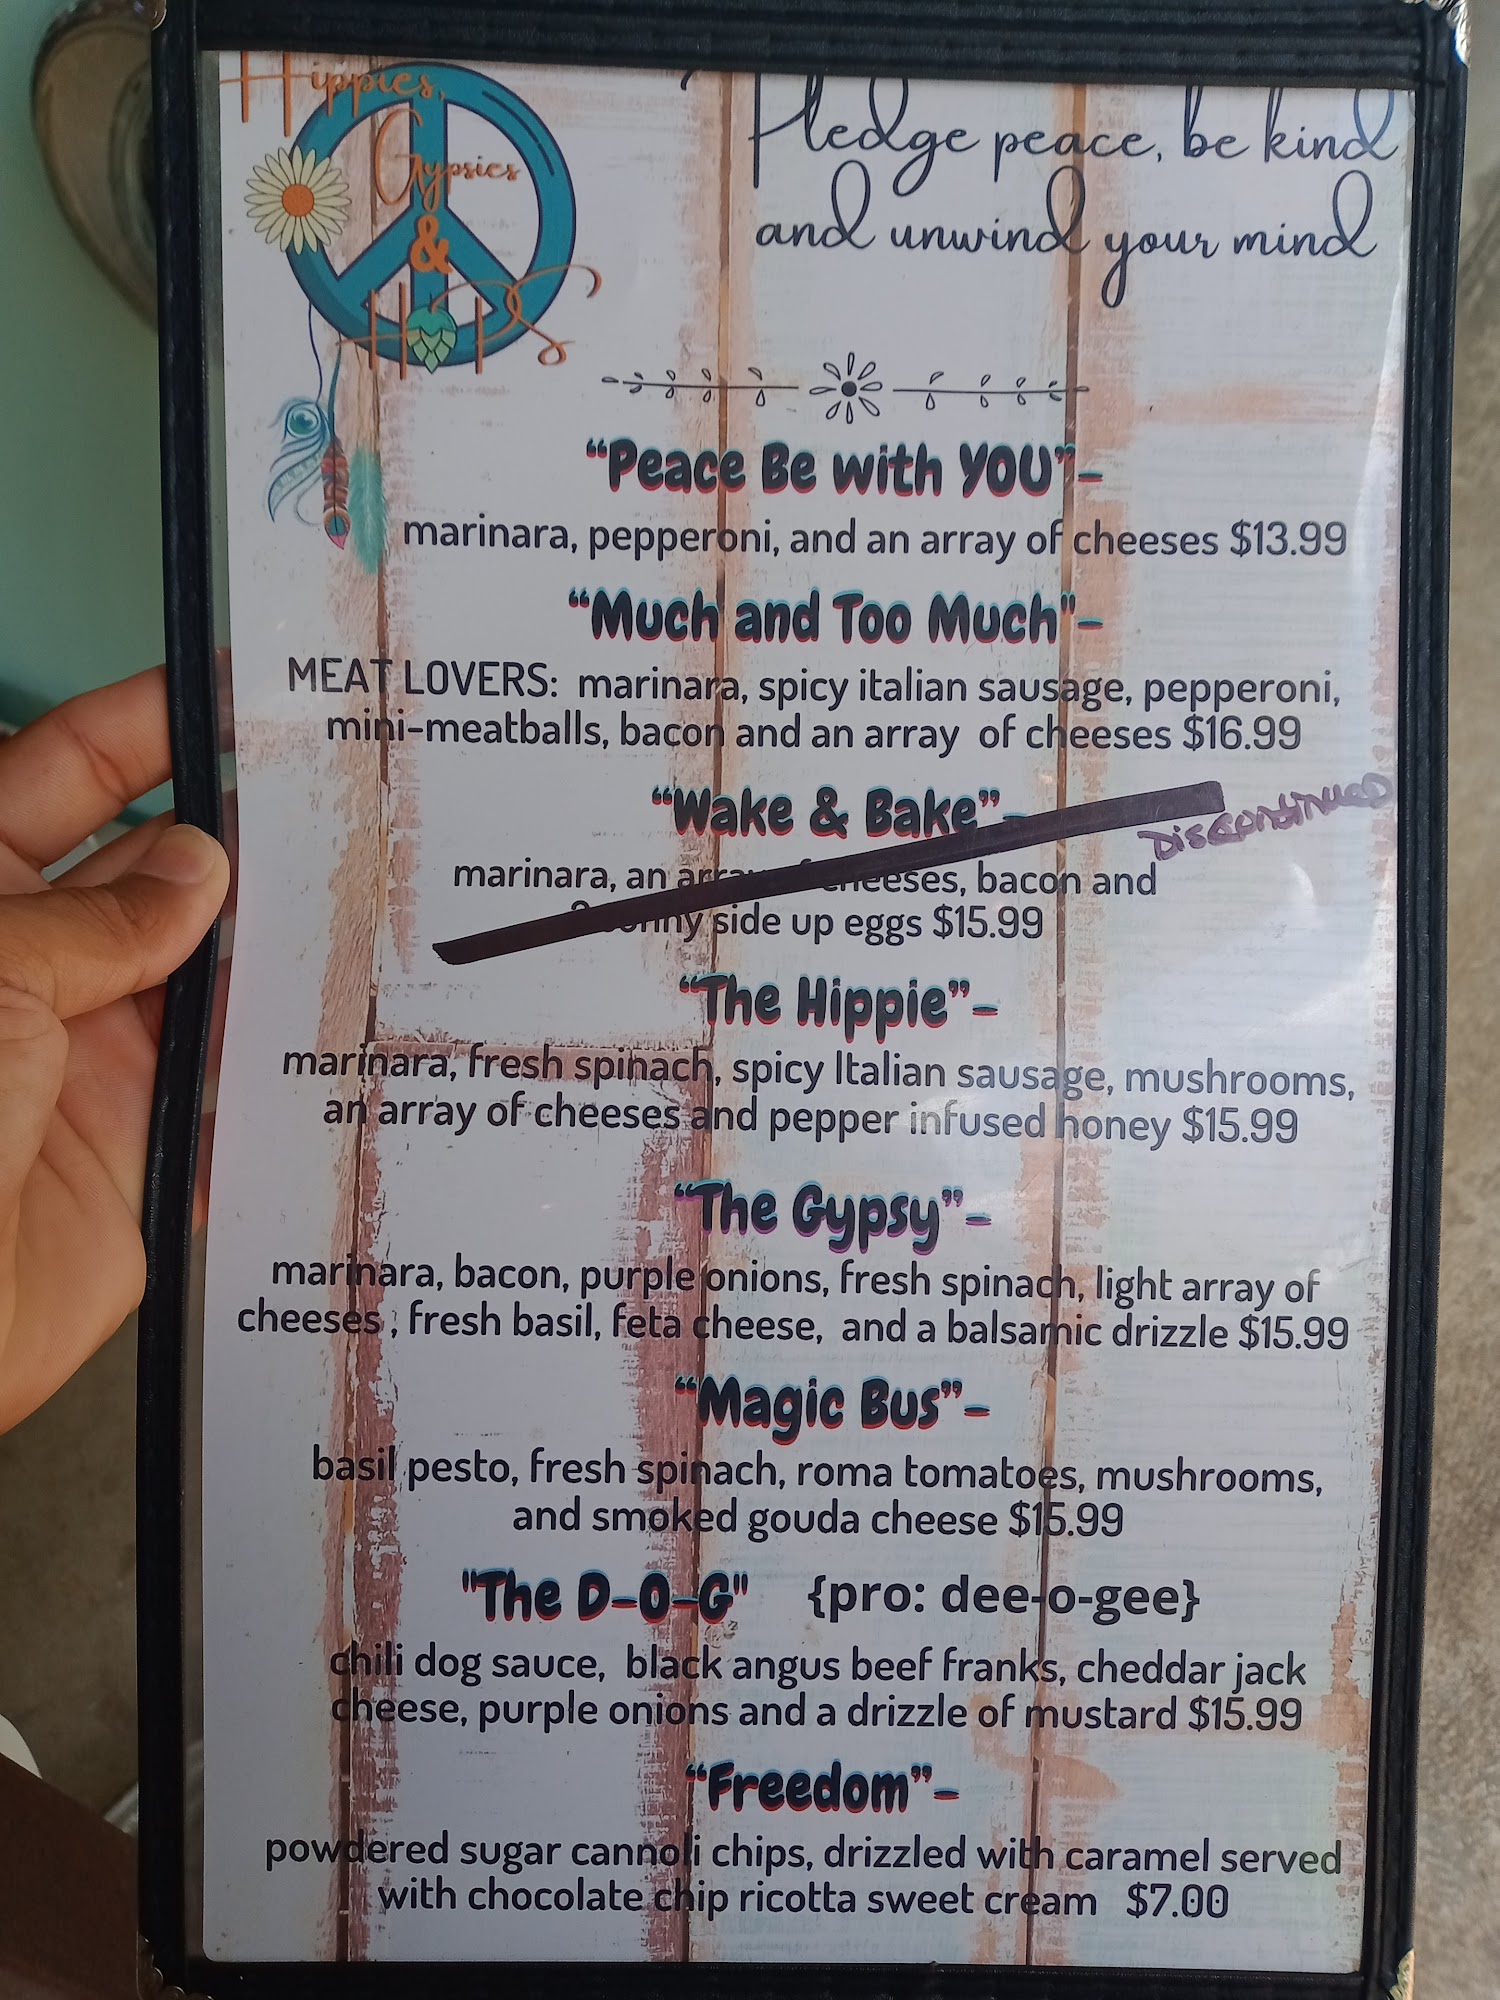 Hippies,
Gypsies
&
HOPS
Pledge peace, be kind
and unwind your mind
“Peace Be with YOU”-
marinara, pepperoni, and an array of cheeses $13.99
“Much and Too Much"-
MEAT LOVERS: marinara, spicy italian sausage, pepperoni,
mini-meatballs, bacon and an array of cheeses $16.99
“Wake & Bake”-
Discontinued
marinara, an array of cheeses, bacon and
sunny side up eggs $15.99
“The Hippie”-
marinara, fresh spinach, spicy Italian sausage, mushrooms,
an array of cheeses and pepper infused honey $15.99
“The Gypsy”-
marinara, bacon, purple onions, fresh spinach, light array of
cheeses , fresh basil, feta cheese, and a balsamic drizzle $15.99
“Magic Bus”-
basil pesto, fresh spinach, roma tomatoes, mushrooms,
and smoked gouda cheese $15.99
"The D-O-G" {pro: dee-o-gee}
chili dog sauce, black angus beef franks, cheddar jack
cheese, purple onions and a drizzle of mustard $15.99
“Freedom”-
powdered sugar cannoli chips, drizzled with caramel served
with chocolate chip ricotta sweet cream $7.00